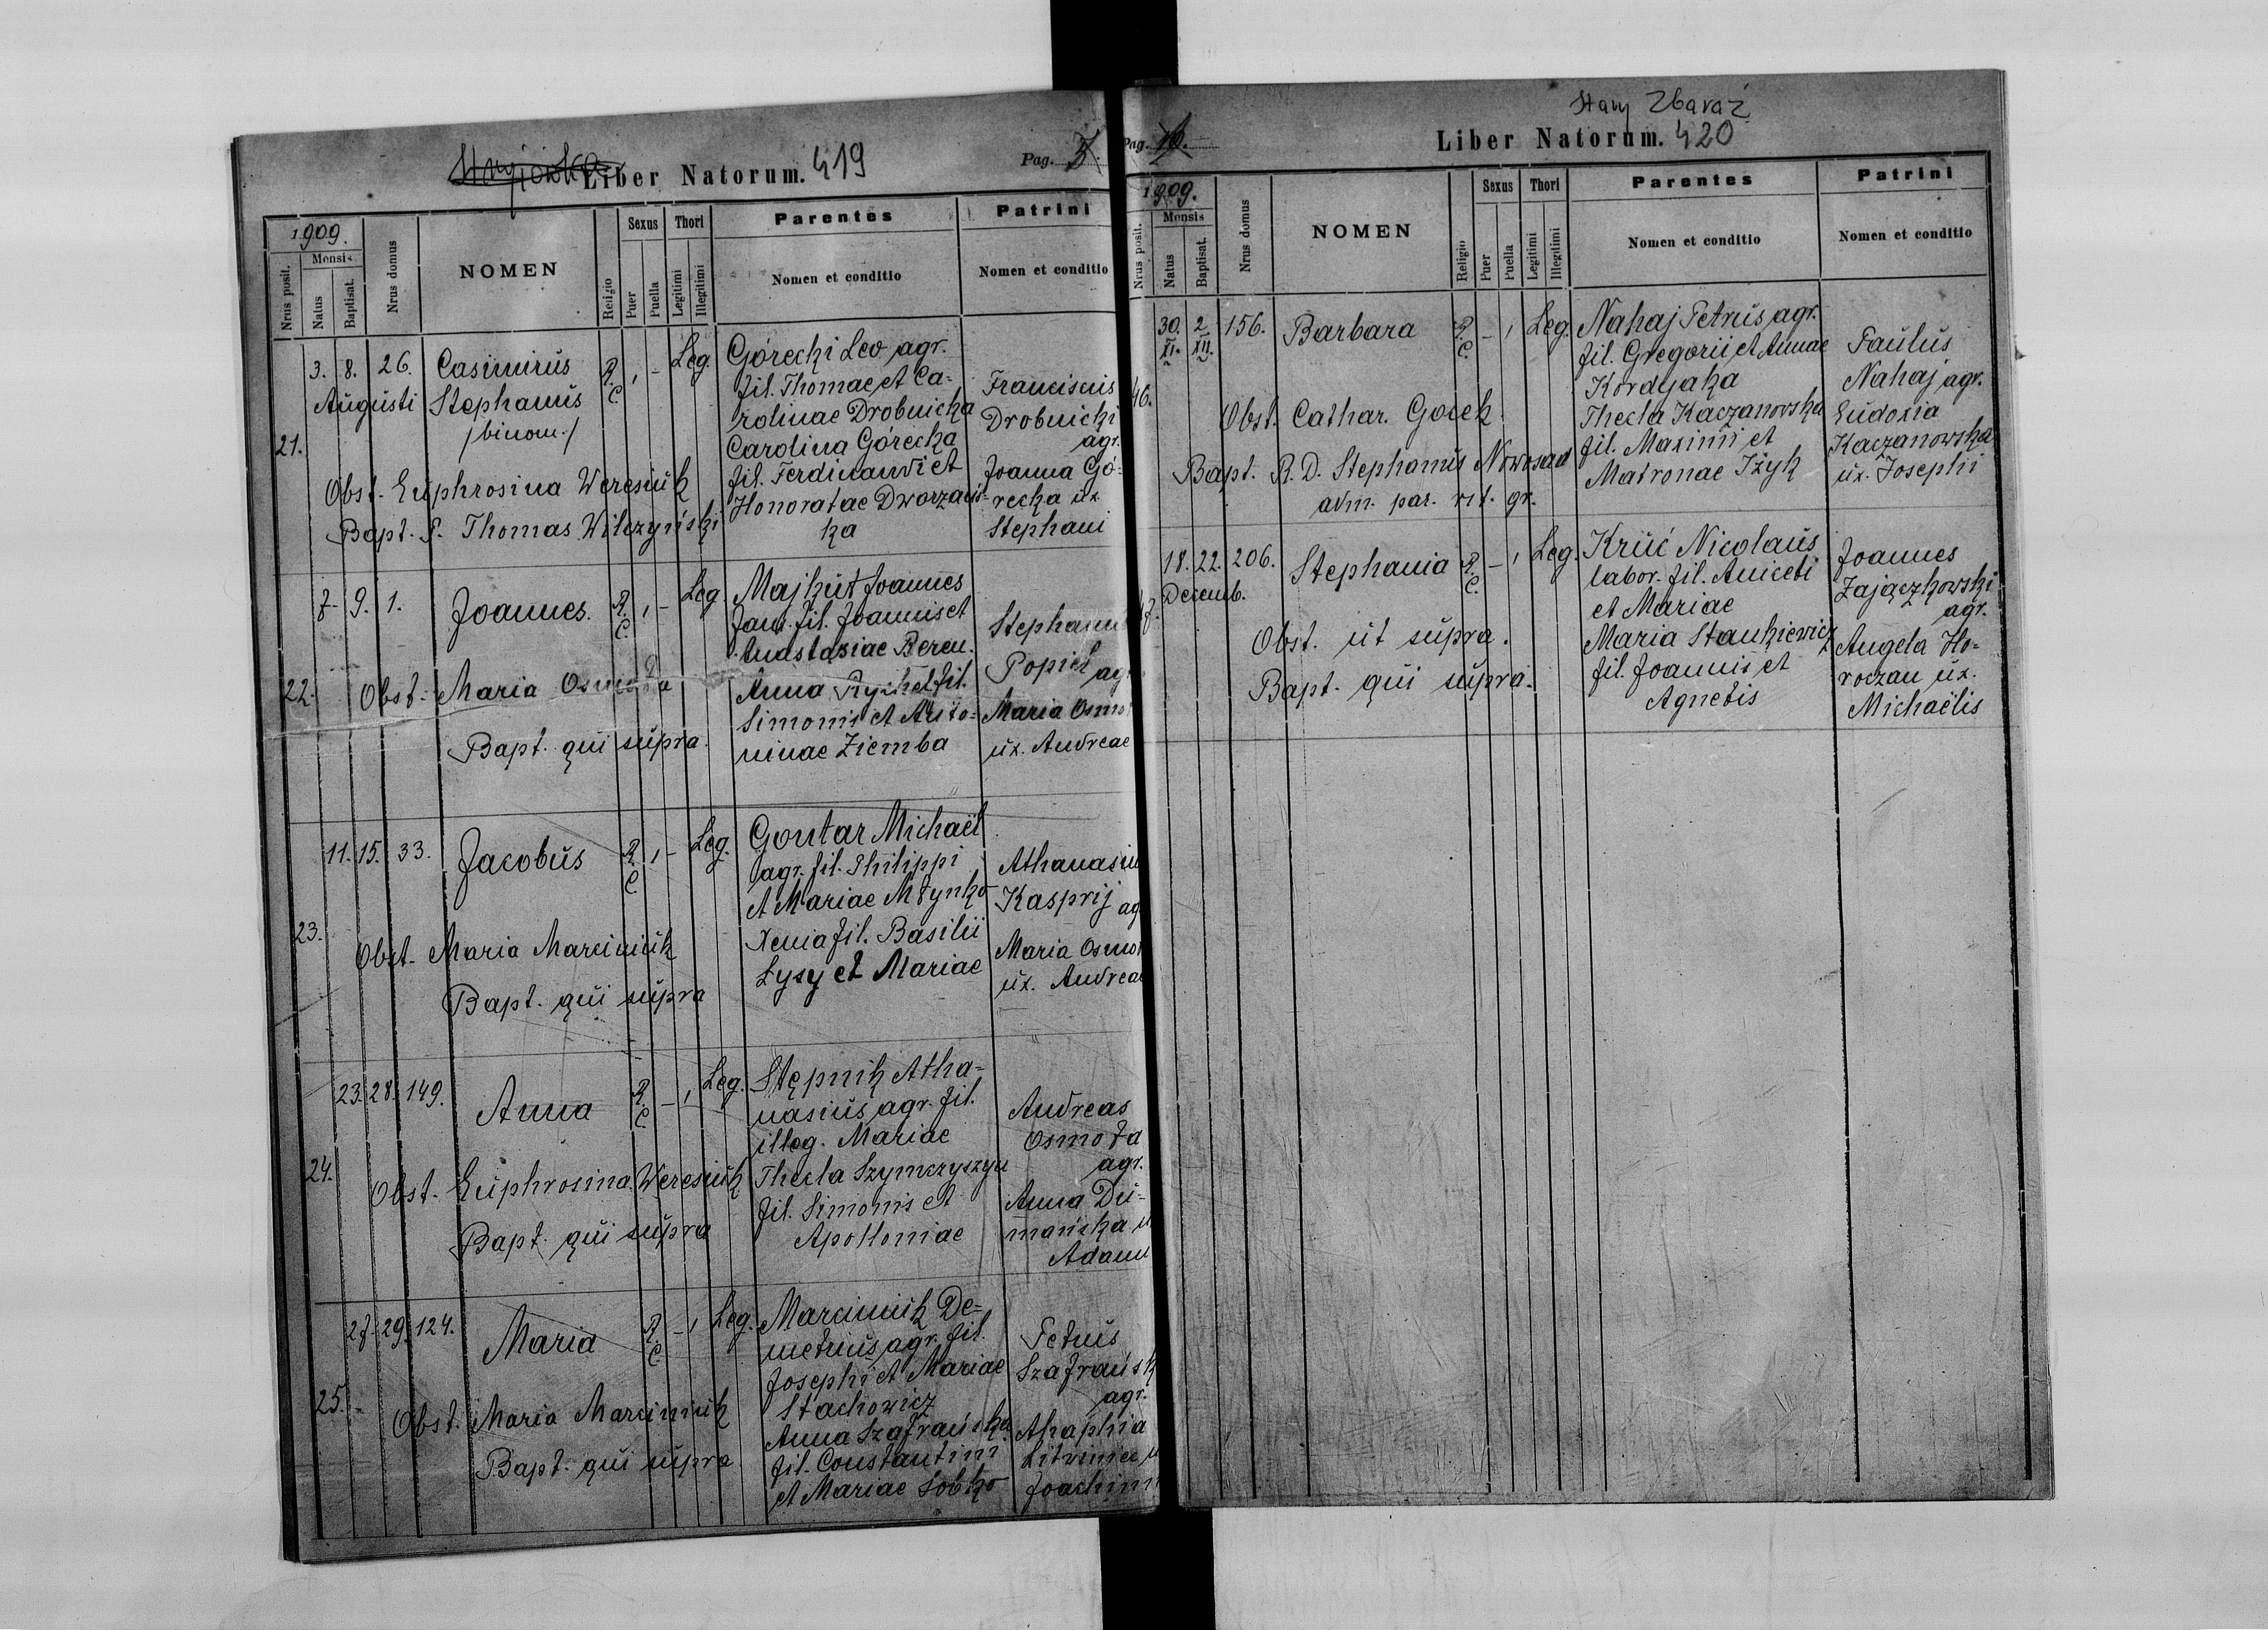 Liber Natorum. 419
Pag.
1909.
Mensis
Nrus posit.
Natus
Baptisat.
Nrus domus
NOMEN
Religio
Sexus
Puer
Puella
Thori
Legitimi
Illegitimi
Parentes
Nomen et conditio
Patrini
Nomen et conditio
21.
3. 8. 26.
Augusti
Casimirus
Stephanus
/binom./
R. C.
1 -
Leg.
Obst. Euphrosina Weresiuk
Bapt. P. Thomas Wilczyński
Górecki Leo agr.
fil. Thomae et Ca-
rolinae Drobnicka
Carolina Górecka
fil. Ferdinandi et
Honoratae Dworzańs-
ka
Franciscus
Drobnicki
agr.
Joanna Gó-
recka ux
Stephani
22.
7. 9. 1.
Joannes.
R. C.
1 -
Leg
Obst. Maria Osmoła
Bapt. qui supra.
Majkut Joannes
fam. fil. Joannis et
Anastasiae Beren.
Anna Rychel fil.
Simonis et Anto-
ninae Ziemba
Popiel
Maria
ux. Andreae
23.
11. 15. 33.
Jacobus
R. C.
1 -
Leg.
Obst. Maria Marciniuk
Bapt. qui supra
Gontar Michaël
agr. fil. Philippi
et Mariae Młynko
Xenia fil. Basilii
Łysy et Mariae
Kasprij
Maria
ux.
24.
23. 28. 149.
Anna
R. C.
- 1
Leg.
Obst. Euphrosina Weresiuk
Bapt. qui supra
Stępnik Atha-
nasius agr. fil.
illeg. Mariae
Thecla Szymczyszyn
fil. Simonis et
Apolloniae
Andreas
Osmoła
agr.
Anna Du-
mańska
25.
27. 29. 124.
Maria
R. C.
- 1
Leg.
Obst. Maria Marciniuk
Bapt. qui supra
Marciniuk De-
metrius agr. fil.
Josephi et Mariae
Stachowicz
Anna Szafrańska
fil. Constantini
et Mariae Sobko
Petrus
agr.
Ahaphia
Stary Zbaraż
Pag.
Liber Natorum. 420
1909.
Mensis
Nrus posit.
Natus
Baptisat.
Nrus domus
NOMEN
Religio
Sexus
Puer
Puella
Thori
Legitimi
Illegitimi
Parentes
Nomen et conditio
Patrini
Nomen et conditio
46.
30. XI.
2 XII.
156.
Barbara
R. C.
- 1
Leg.
Obst. Cathar. Gorek
Bapt. R. D. Stephanus Nowosad
adm. par. rit. gr.
Nahaj Petrus agr.
fil. Gregorii et Annae
Kordyaka
Thecla Kaczanowska
fil. Maximi et
Matronae Iżyk
Paulus
Nahaj agr.
Eudoxia
Kaczanowska
ux. Josephi
18. 22. 206.
Decemb.
Stephania
R. C.
- 1
Leg.
Obst. ut supra.
Bapt. qui supra.
Kruć Nicolaus
labor. fil. Aniceti
et Mariae
Maria Stankiewicz
fil. Joannis et
Agnetis
Joannes
Zajączkowski
agr.
Angela Ho-
roczan ux.
Michaëlis